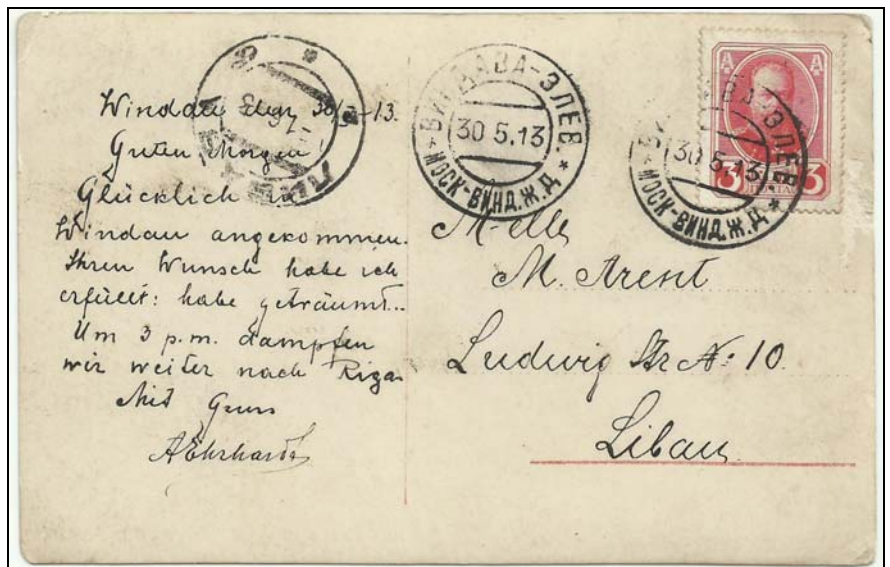 Windau den 30/5-13.
Guten Morgen!
Glücklich in
Windau angekommen.
Ihren Wunsch habe ich
erfüllt: habe geträumt...
Um 3 p.m. dampfen
wir weiter nach Riga
Mit Gruss
AEhrhardt
ВИНДАВА-ЭЛЕВ.
30 5.13
МОСК-ВИНД.Ж.Д
ЭЛЕВ.
30 5.13
МОСК-ВИНД.Ж.Д
3 3
M-elle
M. Arent
Ludwig Str №: 10.
Libau